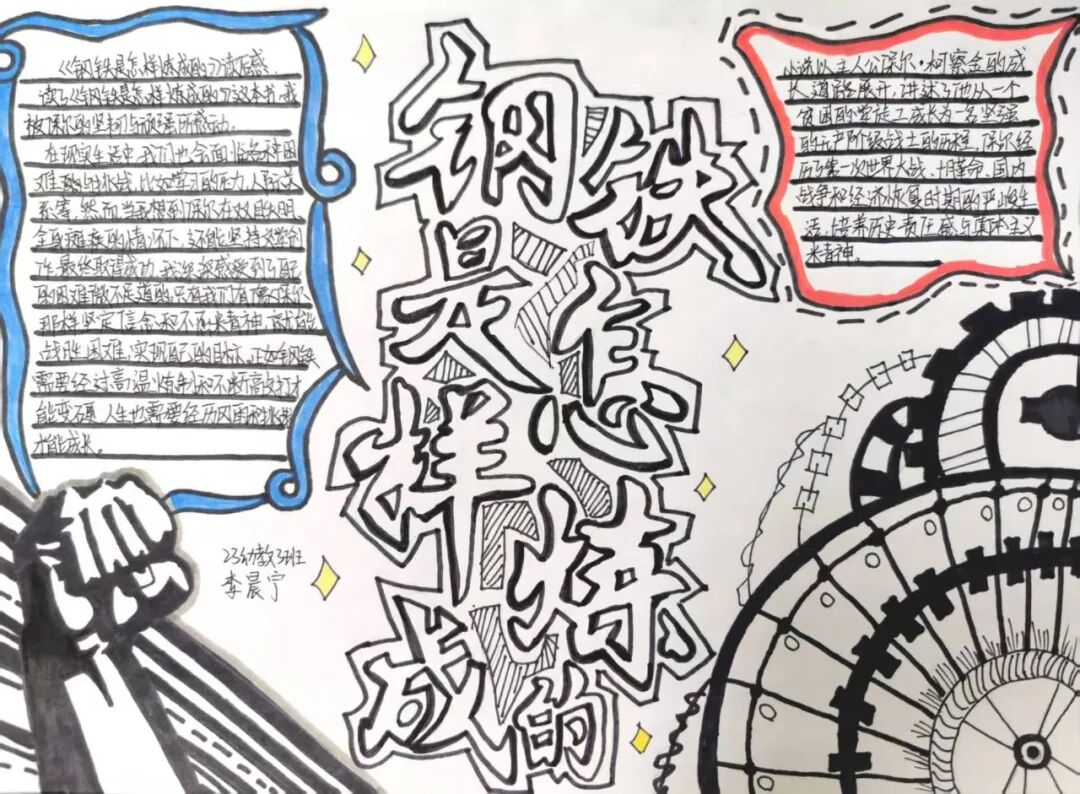 《钢铁是怎样炼成的》读后感
读了《钢铁是怎样炼成的》这本书,我
被保尔的坚韧与顽强所感动。
在现实生活中,我们也会面临各种困
难与挑战,比如学习的压力,人际关
系等,然而当我想到保尔在双目失明
全身瘫痪的情况下,还能坚持文学创
作,最终取得成功,我深深感受到自己
的困难微不足道的,只有我们有像保尔
那样坚定信念和不屈精神,就能
战胜困难,实现自己的目标。正如钢铁
需要经过高温炼制和不断高敲打才
能变硬,人生也需要经历风雨和挑战
才能成长。
钢铁
是怎
样炼
成的
小说以主人公保尔·柯察金的成
长道路展开,讲述了他从一个
贫困的学徒工成长为一名坚强
的无产阶级战士的历程,保尔经
历第一次世界大战、十月革命、国内
战争和经济恢复时期的严峻生
活,培养历史责任感与集体主义
精神。
23幼教3班
李晨宁